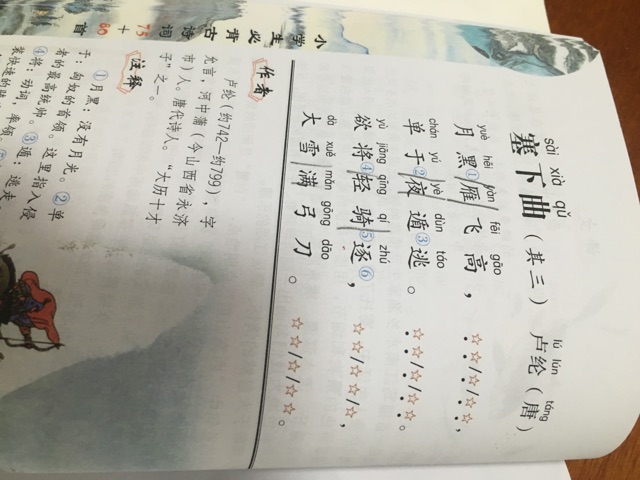 小学生必背古诗词75+80首
sài xià qǔ
塞下曲（其三） 卢纶（唐）
lú lún táng
yuè hēi yàn fēi gāo
月黑①雁飞高，☆☆/☆/☆☆，
chán yú yè dùn táo
单于②夜遁③逃。☆☆/☆/☆☆。
yù jiāng qīng qí zhú
欲将④轻骑⑤逐⑥，☆☆/☆☆/☆，
dà xuě mǎn gōng dāo
大雪满弓刀。☆☆/☆/☆☆。
作者
卢纶（约742—约799），字
允言，河中蒲（今山西省永济
市）人。唐代诗人。“大历十才
子”之一。
注释
①月黑：没有月光。②单
于：匈奴的首领。这里指入侵
者的最高统帅。③遁
④将：动词，率领。